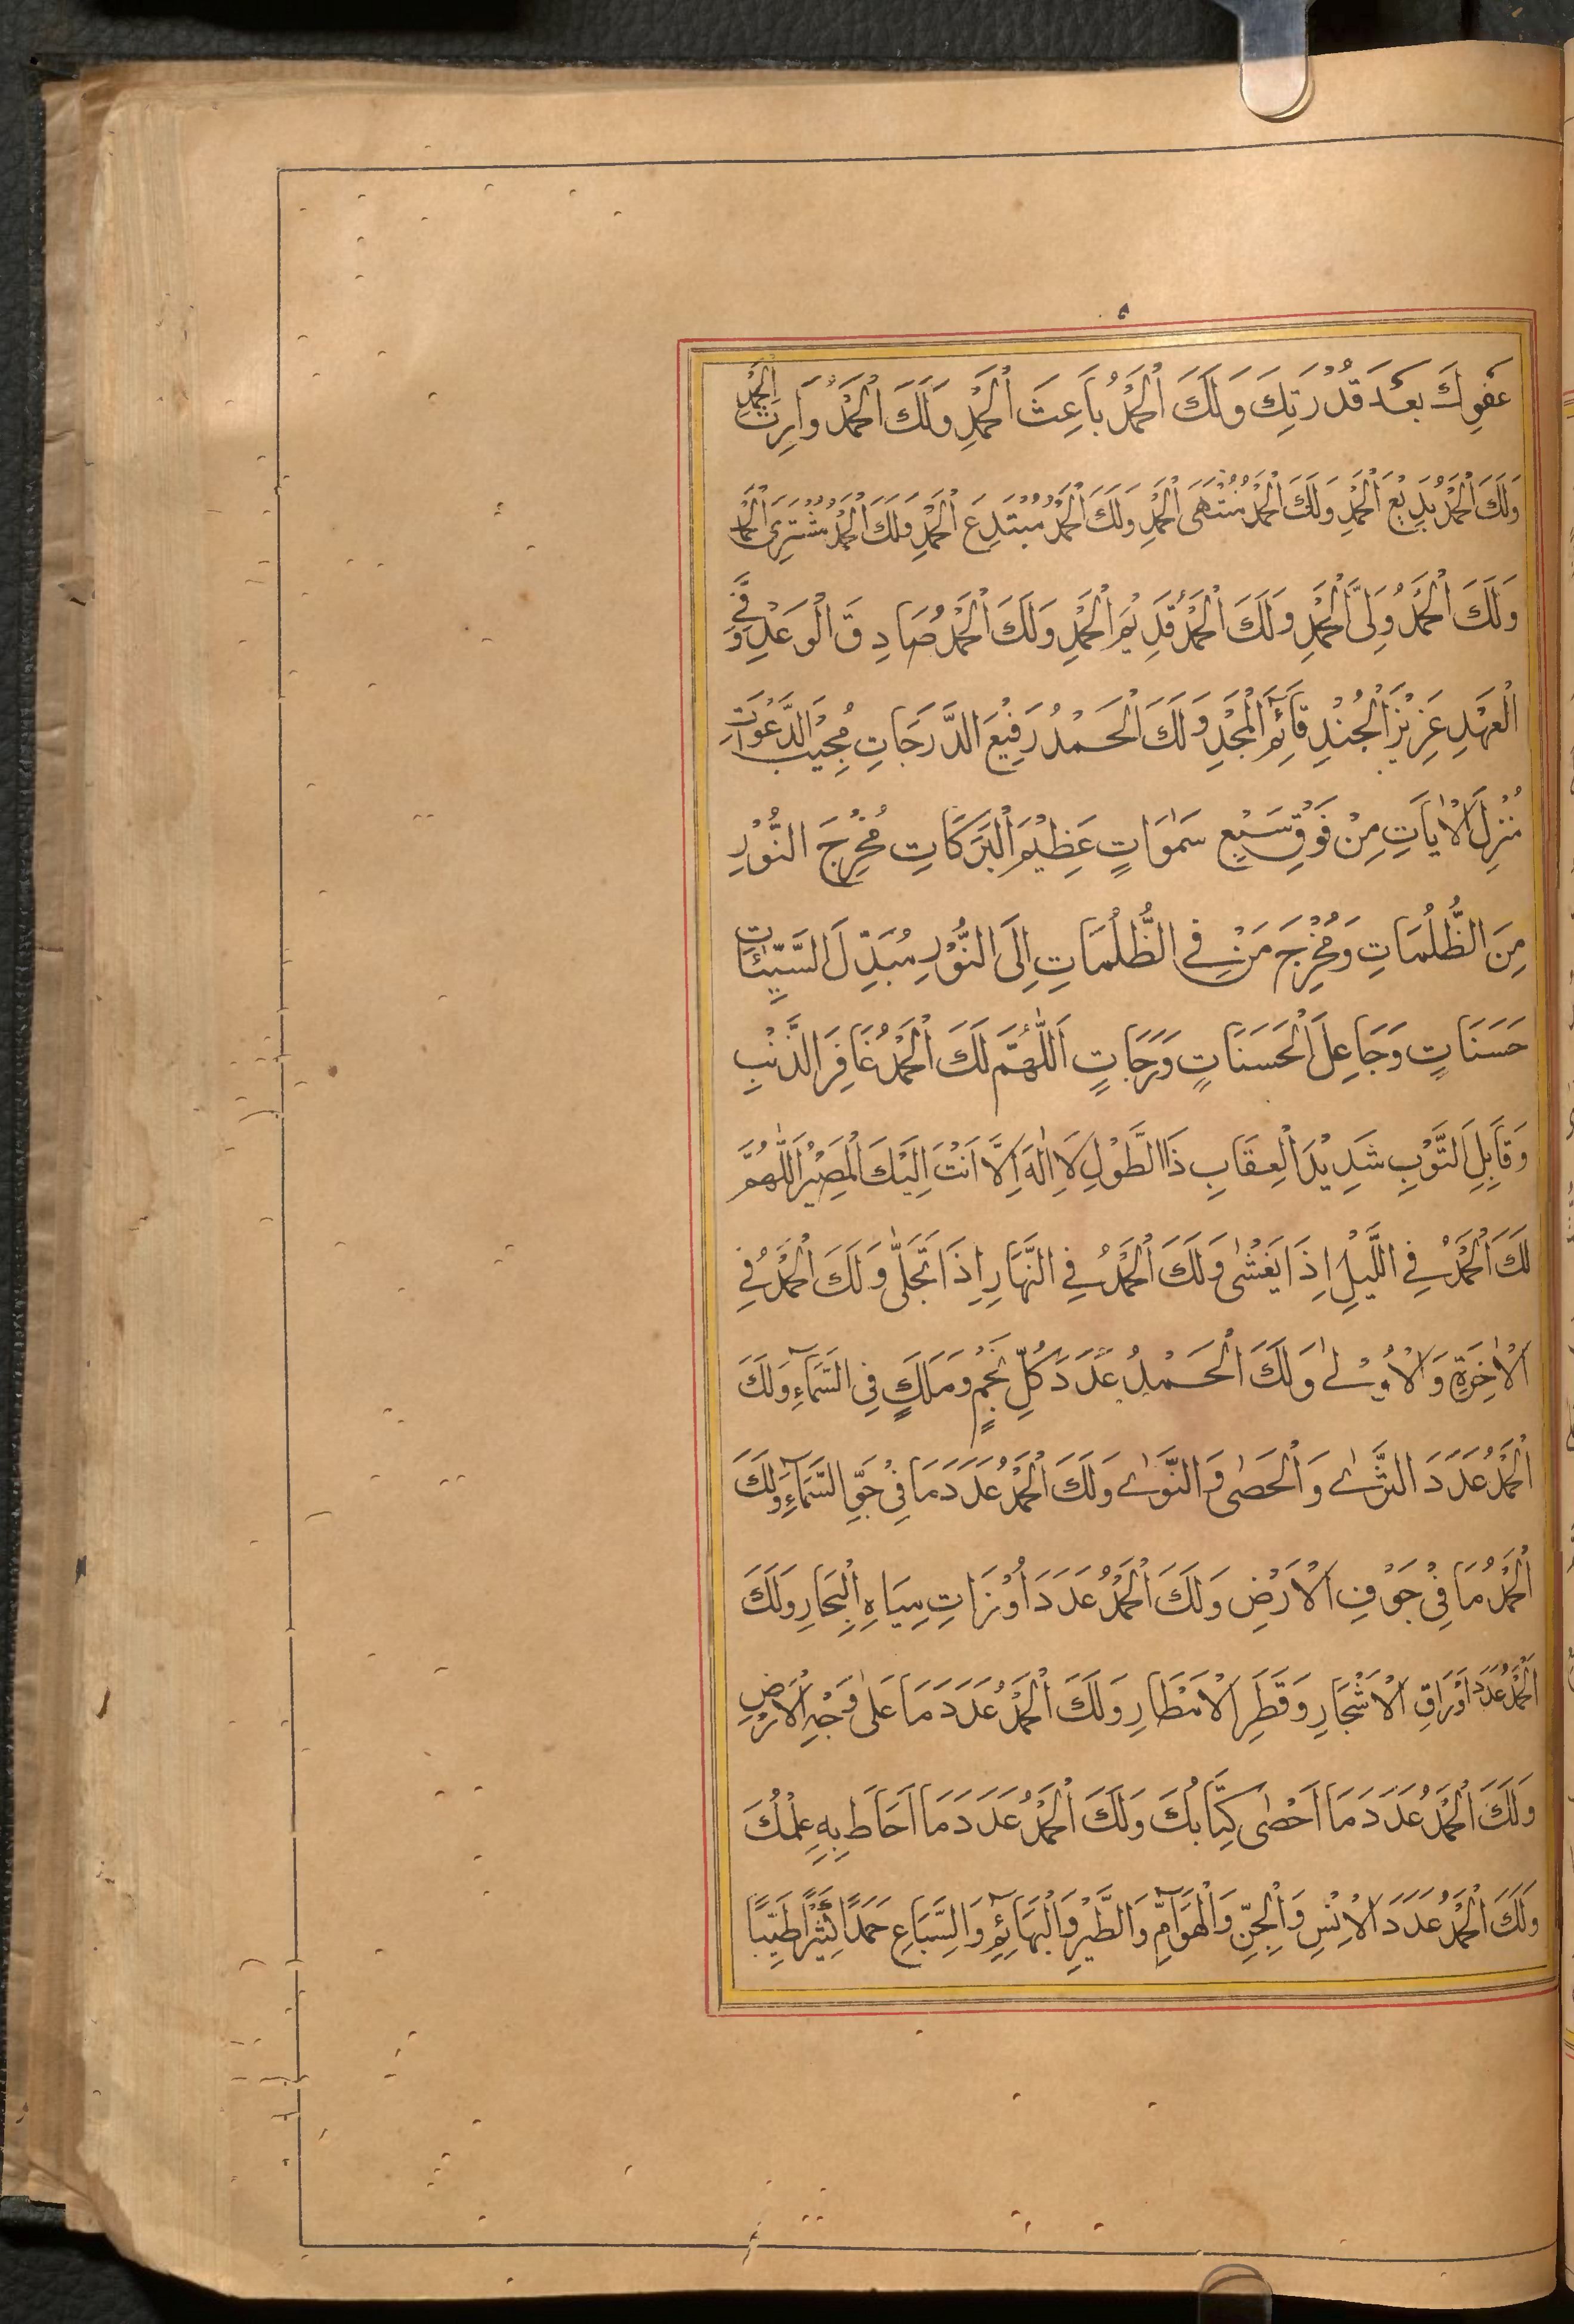 ۵
عَفْوِكَ بَعْدَ قُدْرَتِكَ وَلَكَ الْحَمْدُ بَاعِثَ الْحَمْدِ وَلَكَ الْحَمْدُ وَارِثَ الْحَمْدِ
وَلَكَ الْحَمْدُ بَدِيْعَ الْحَمْدِ وَلَكَ الْحَمْدُ مُنْتَهَى الْحَمْدِ وَلَكَ الْحَمْدُ مُبْتَدِعَ الْحَمْدِ وَلَكَ الْحَمْدُ مُشْتَرِىَ الْحَمْدِ
وَلَكَ الْحَمْدُ وَلِىَّ الْحَمْدِ وَلَكَ الْحَمْدُ قَدِيْمَ الْحَمْدِ وَلَكَ الْحَمْدُ صَادِقَ الْوَعْدِ وَفِىَّ
الْعَهْدِ عَزِيْزَ الْجُنْدِ قَآئِمَ الْمَجْدِ وَلَكَ الْحَمْدُ رَفِيْعَ الدَّرَجَاتِ مُجِيْبَ الدَّعْوَاتِ
مُنْزِلَ الْاٰيَاتِ مِنْ فَوْقِ سَبْعِ سَمٰوَاتٍ عَظِيْمَ الْبَرَكَاتِ مُخْرِجَ النُّوْرِ
مِنَ الظُّلُمَاتِ وَمُخْرِجَ مَنْ فِى الظُّلُمَاتِ اِلَى النُّوْرِ مُبَدِّلَ السَّيِّئَاتِ
حَسَنَاتٍ وَجَاعِلَ الْحَسَنَاتِ دَرَجَاتٍ اَللّٰهُمَّ لَكَ الْحَمْدُ غَافِرَ الذَّنْبِ
وَقَابِلَ التَّوْبِ شَدِيْدَ الْعِقَابِ ذَا الطَّوْلِ لَا اِلٰهَ اِلَّا اَنْتَ اِلَيْكَ الْمَصِيْرُ اَللّٰهُمَّ
لَكَ الْحَمْدُ فِى اللَّيْلِ اِذَا يَغْشٰى وَلَكَ الْحَمْدُ فِى النَّهَارِ اِذَا تَجَلّٰى وَلَكَ الْحَمْدُ فِى
الْاٰخِرَةِ وَالْاُوْلٰى وَلَكَ الْحَمْدُ عَدَدَ كُلِّ نَجْمٍ وَمَلَكٍ فِى السَّمَآءِ وَلَكَ
الْحَمْدُ عَدَدَ الثَّرٰى وَالْحَصٰى وَالنَّوٰى وَلَكَ الْحَمْدُ عَدَدَ مَا فِىْ جَوِّ السَّمَآءِ وَلَكَ
الْحَمْدُ مَا فِىْ جَوْفِ الْاَرْضِ وَلَكَ الْحَمْدُ عَدَدَ اَوْزَانِ مِيَاهِ الْبِحَارِ وَلَكَ
الْحَمْدُ عَدَدَ اَوْرَاقِ الْاَشْجَارِ وَقَطَرِ الْاَمْطَارِ وَلَكَ الْحَمْدُ عَدَدَ مَا عَلٰى وَجْهِ الْاَرْضِ
وَلَكَ الْحَمْدُ عَدَدَ مَا اَحْصٰى كِتَابُكَ وَلَكَ الْحَمْدُ عَدَدَ مَا اَحَاطَ بِهِ عِلْمُكَ
وَلَكَ الْحَمْدُ عَدَدَ الْاِنْسِ وَالْجِنِّ وَالْهَوَآمِّ وَالطَّيْرِ وَالْبَهَآئِمِ وَالسِّبَاعِ حَمْدًا كَثِيْرًا طَيِّبًا